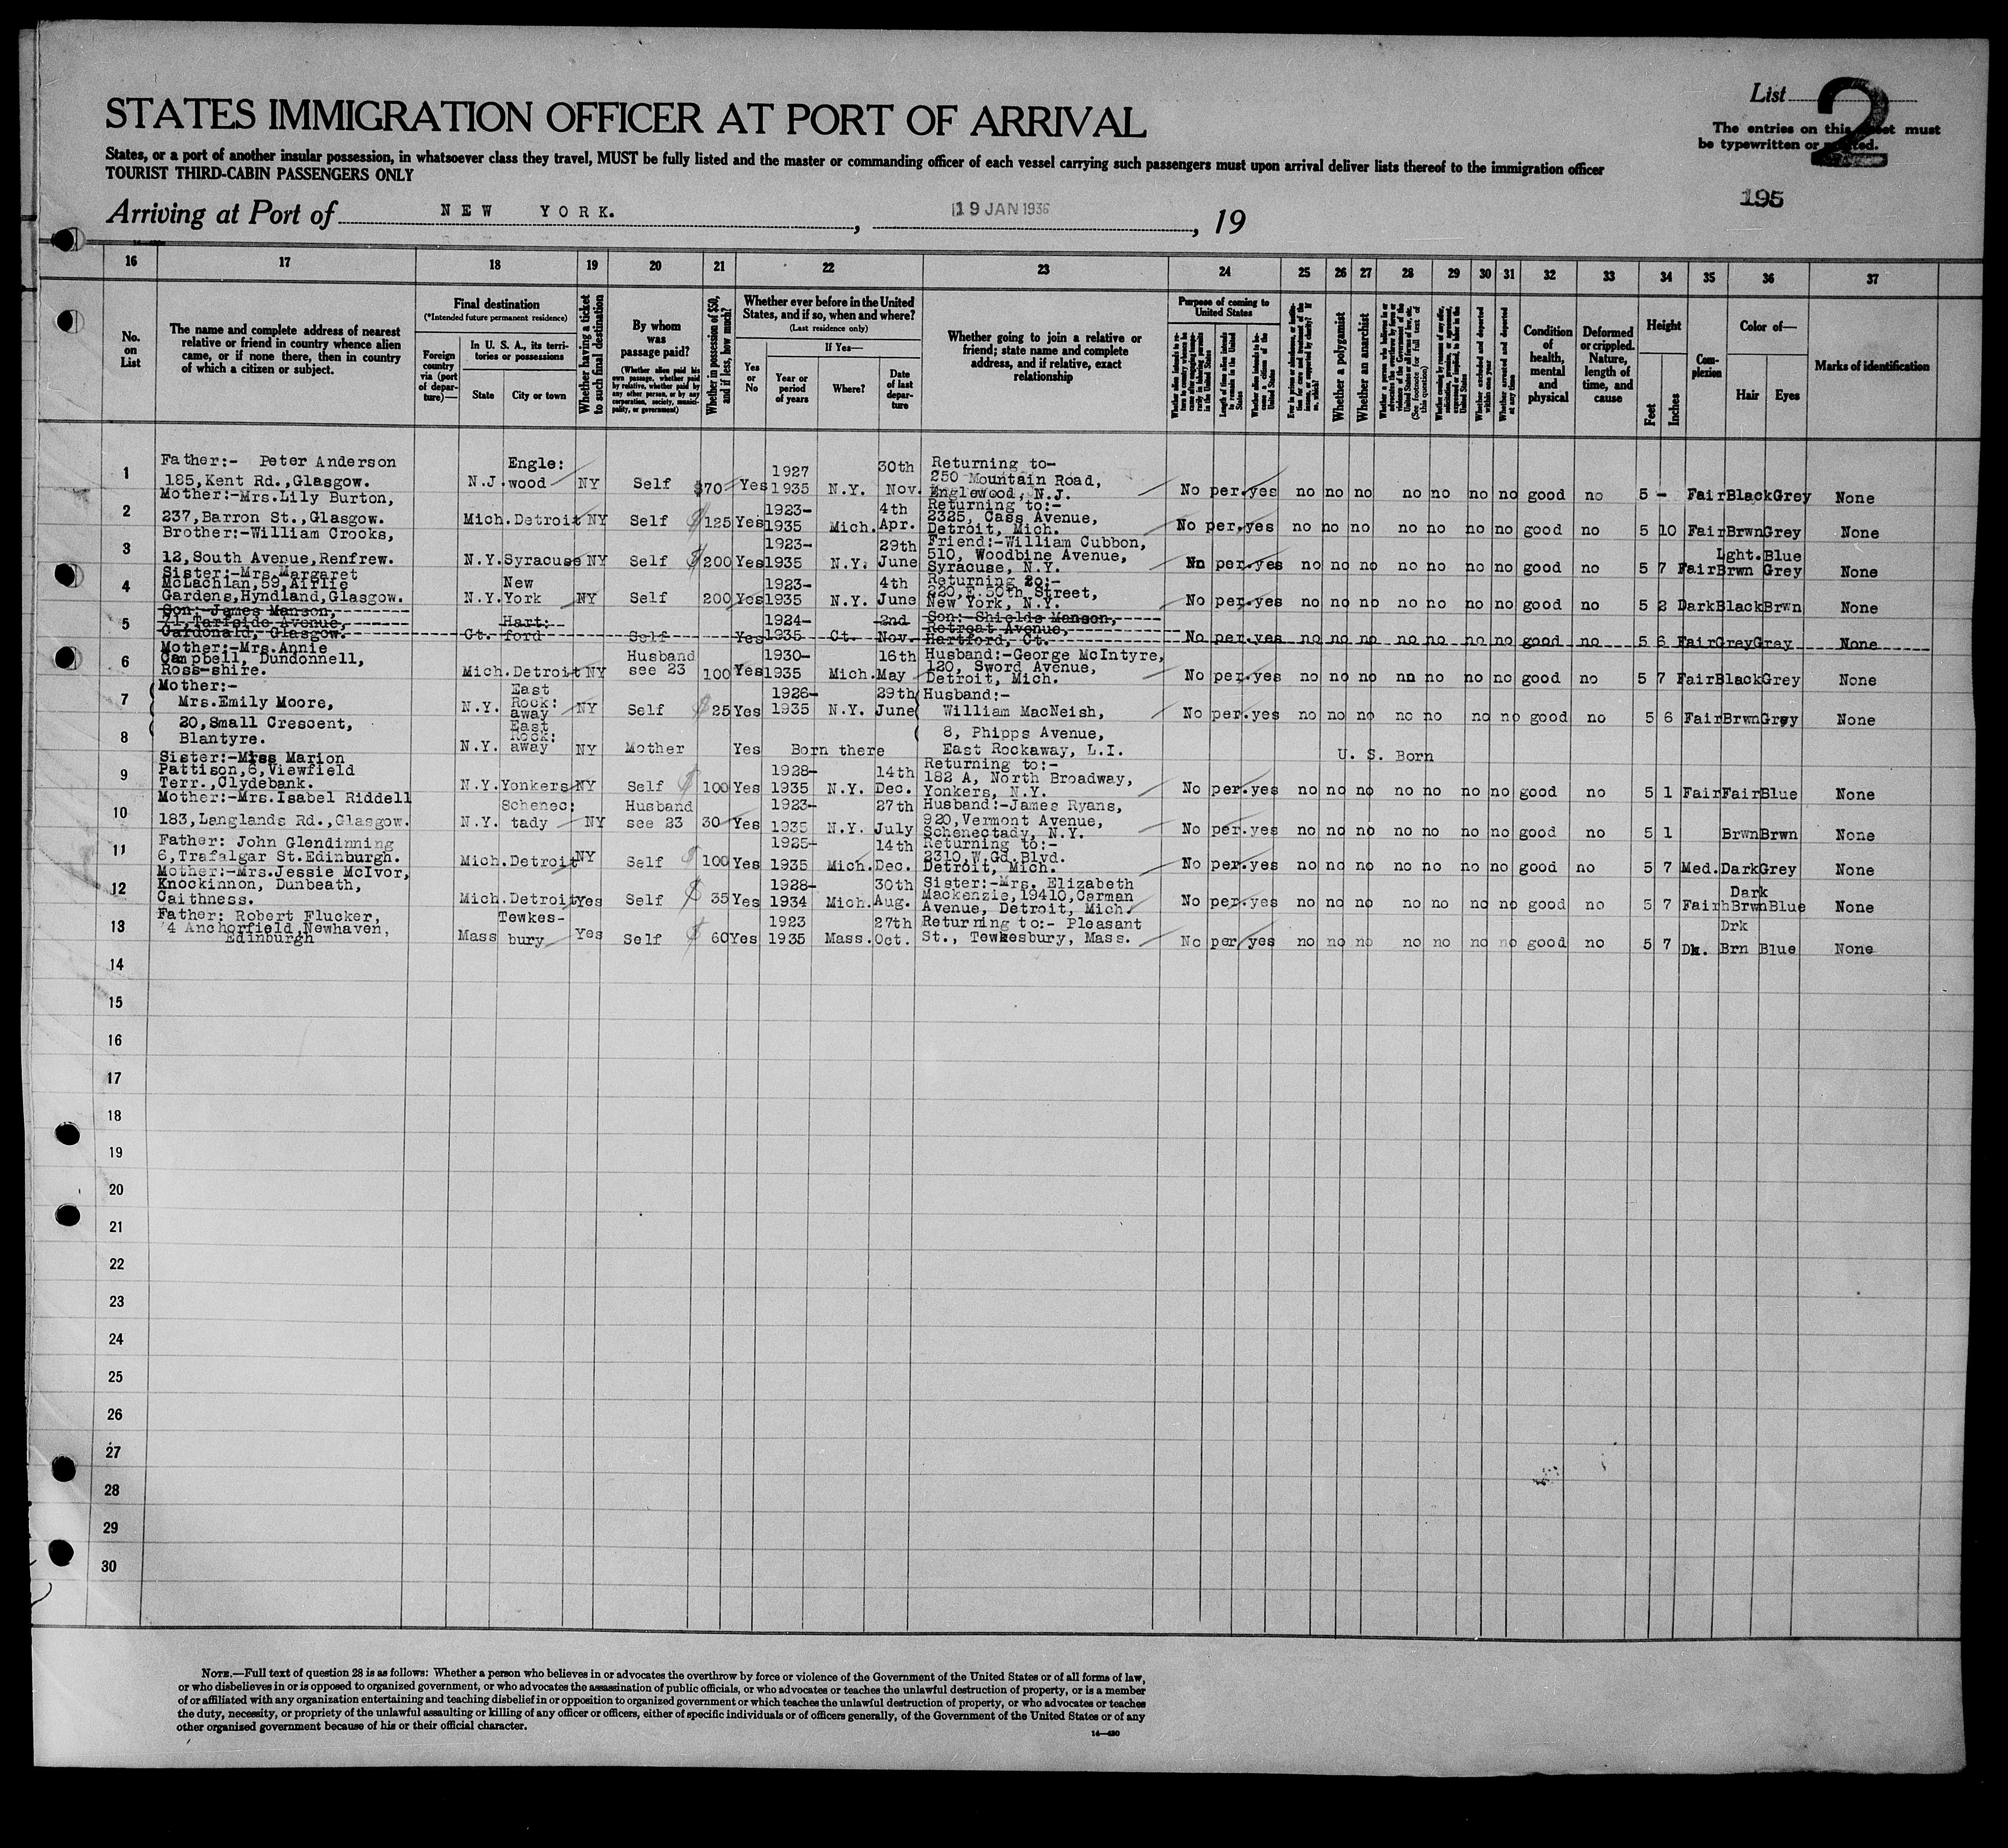 STATES IMMIGRATION OFFICER AT PORT OF ARRIVAL
List 2
The entries on this sheet must
be typewritten or printed.
States, or a port of another insular possession, in whatsoever class they travel, MUST be fully listed and the master or commanding officer of each vessel carrying such passengers must upon arrival deliver lists thereof to the immigration officer
TOURIST THIRD-CABIN PASSENGERS ONLY
195
Arriving at Port of NEW YORK. , 19 JAN 1936 , 19
16 17 18 19 20 21 22 23 24 25 26 27 28 29 30 31 32 33 34 35 36 37
No. on List
The name and complete address of nearest relative or friend in country whence alien came, or if none there, then in country of which a citizen or subject.
Final destination
(*Intended future permanent residence)
Foreign country via (port of departure)—
In U. S. A., its territories or possessions
State
City or town
Whether having a ticket to such final destination
By whom was passage paid?
(Whether alien paid his own passage, whether paid by relative, whether paid by any other person, or by any corporation, society, municipality, or government)
Whether in possession of $50, and if less, how much?
Whether ever before in the United States, and if so, when and where?
(Last residence only)
Yes or No
If Yes—
Year or period of years
Where?
Date of last departure
Whether going to join a relative or friend; state name and complete address, and if relative, exact relationship
Purpose of coming to United States
Length of time alien intends to remain in the United States
Whether alien intends to become a citizen of the United States
Whether a polygamist
Whether an anarchist
(See footnote for full text of this question)
Whether excluded and deported within one year
Whether arrested and deported at any time
Condition of health, mental and physical
Deformed or crippled. Nature, length of time, and cause
Height
Feet
Inches
Complexion
Color of—
Hair
Eyes
Marks of identification
1 Father:- Peter Anderson 185,Kent Rd.,Glasgow. N.J. Engle:wood NY Self $70 Yes 1927 1935 N.Y. 30th Nov. Returning to- 250 Mountain Road, Englewood, N.J. No per. yes no no no no no no no good no 5 - Fair Black Grey None
2 Mother:-Mrs.Lily Burton, 237,Barron St.,Glasgow. Mich. Detroit NY Self $125 Yes 1923- 1935 Mich. 4th Apr. Returning to:- 2325, Cass Avenue, Detroit, Mich. No per. yes no no no no no no no good no 5 10 Fair Brwn Grey None
3 Brother:-William Crooks, 12,South Avenue,Renfrew. N.Y. Syracuse NY Self $200 Yes 1923- 1935 N.Y. 29th June Friend:-William Cubbon, 510, Woodbine Avenue, Syracuse, N.Y. No per. yes no no no no no no no good no 5 7 Fair Lght. Brwn Blue Grey None
4 Sister:-Mrs.Margaret McLachlan,59,Airlie Gardens,Hyndland,Glasgow. N.Y. New York NY Self 200 Yes 1923- 1935 N.Y. 4th June Returning to:- 220,E.50th Street, New York, N.Y. No per. yes no no no no no no no good no 5 2 Dark Black Brwn None
5 Son:-James Manson, 71,Tarfside Avenue, Cardonald, Glasgow. Ct. Hart:ford Self Yes 1924- 1935 Ct. 2nd Nov. Son:-Shields Manson, Retreat Avenue, Hartford, Ct. No per. yes no no no no no no no good no 5 6 Fair Grey Grey None
6 Mother:-Mrs.Annie Campbell, Dundonnell, Ross-shire. Mich. Detroit NY Husband see 23 100 Yes 1930- 1935 Mich. 16th May Husband:-George McIntyre, 120, Sword Avenue, Detroit, Mich. No per. yes no no no no no no no good no 5 7 Fair Black Grey None
7 Mother:- Mrs.Emily Moore, N.Y. East Rock:away NY Self $25 Yes 1926- 1935 N.Y. 29th June Husband:- William MacNeish, No per. yes no no no no no no no good no 5 6 Fair Brwn Grey None
8 20,Small Crescent, Blantyre. N.Y. East Rock:away NY Mother Yes Born there 8, Phipps Avenue, East Rockaway, L.I. U. S. Born
9 Sister:-Miss Marion Pattison,6,Viewfield Terr.,Clydebank. N.Y. Yonkers NY Self $100 Yes 1928- 1935 N.Y. 14th Dec. Returning to:- 182 A, North Broadway, Yonkers, N.Y. No per. yes no no no no no no no good no 5 1 Fair Fair Blue None
10 Mother:-Mrs.Isabel Riddell 183,Langlands Rd.,Glasgow. N.Y. Schenec:tady NY Husband see 23 30 Yes 1923- 1935 N.Y. 27th July Husband:-James Ryans, 920,Vermont Avenue, Schenectady, N.Y. No per. yes no no no no no no no good no 5 1 Brwn Brwn None
11 Father: John Glendinning 6,Trafalgar St.Edinburgh. Mich. Detroit NY Self $100 Yes 1925- 1935 Mich. 14th Dec. Returning to:- 2310,W.Gd.Blvd. Detroit, Mich. No per. yes no no no no no no no good no 5 7 Med. Dark Grey None
12 Mother:-Mrs.Jessie McIvor, Knockinnon, Dunbeath, Caithness. Mich. Detroit Yes Self $35 Yes 1928- 1934 Mich. 30th Aug. Sister:-Mrs. Elizabeth Mackenzie,19410,Carman Avenue, Detroit, Mich. No per. yes no no no no no no no good no 5 7 Fair Dark Brwn Blue None
13 Father: Robert Flucker, 4 Anchorfield,Newhaven, Edinburgh Mass Tewkes-bury Yes Self $60 Yes 1923 1935 Mass. 27th Oct. Returning to:- Pleasant St., Tewkesbury, Mass. No per yes no no no no no no no good no 5 7 Dk. Drk Brn Blue None
14
15
16
17
18
19
20
21
22
23
24
25
26
27
28
29
30
NOTE.—Full text of question 28 is as follows: Whether a person who believes in or advocates the overthrow by force or violence of the Government of the United States or of all forms of law,
or who disbelieves in or is opposed to organized government, or who advocates the assassination of public officials, or who advocates or teaches the unlawful destruction of property, or is a member
of or affiliated with any organization entertaining and teaching disbelief in or opposition to organized government or which teaches the unlawful destruction of property, or who advocates or teaches
the duty, necessity, or propriety of the unlawful assaulting or killing of any officer or officers, either of specific individuals or of officers generally, of the Government of the United States or of any
other organized government because of his or their official character.
14—430